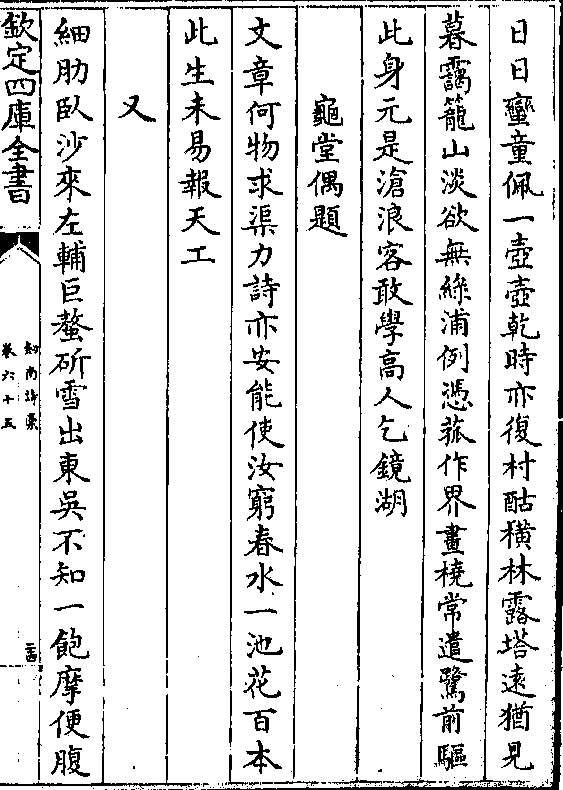 日日蠻童佩一壺壺乾時亦復村酤横林露塔逺猶見
暮靄籠山淡欲無綠浦例憑菰作界畫橈常遣鷺前驅
此身元是滄浪客敢學髙人乞鏡湖
龜堂偶題
文章何物求渠力詩亦安能使汝窮春水一池花百本
此生未易報天工
又
細肋卧沙來左輔巨螯斫雪出東吳不知一飽摩便腹
欽定四庫全書
劍南詩槀
卷六十五